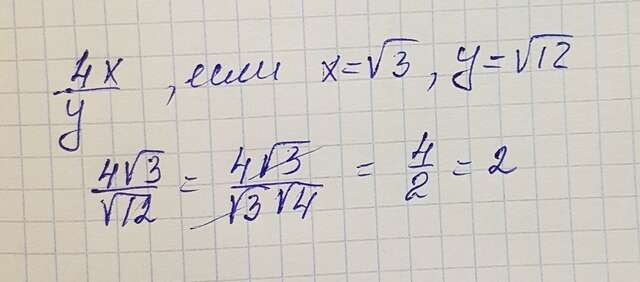 4x/y, если x=√3, y=√12
4√3/√12 = 4√3/√3√4 = 4/2 = 2